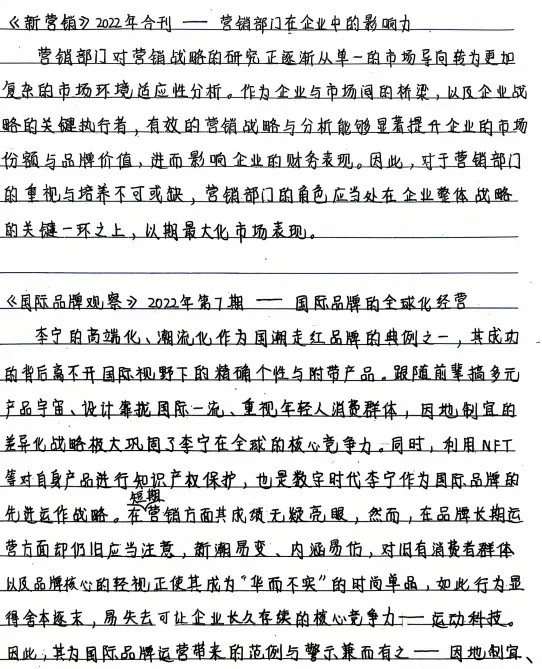 《新营销》2022年合刊 —— 营销部门在企业中的影响力
营销部门对营销战略的研究正逐渐从单一的市场导向转为更加
复杂的市场环境适应性分析。作为企业与市场间的桥梁，以及企业战
略的关键执行者，有效的营销战略与分析能够显著提升企业的市场
份额与品牌价值，进而影响企业的财务表现。因此，对于营销部门
的重视与培养不可或缺，营销部门的角色应当处在企业整体战略
的关键一环之上，以期最大化市场表现。
《国际品牌观察》2022年第7期 —— 国际品牌的全球化经营
李宁的高端化、潮流化作为国潮走红品牌的典例之一，其成功
的背后离不开国际视野下的精确个性与附带产品。跟随前辈搞多元
产品宇宙、设计靠拢国际一流、重视年轻人消费群体，因地制宜的
差异化战略极大巩固了李宁在全球的核心竞争力。同时，利用NFT
等对自身产品进行知识产权保护，也是数字时代李宁作为国际品牌的
先进运作战略。在短期营销方面其成绩无疑亮眼，然而，在品牌长期运
营方面却仍旧应当注意，新潮易变、内涵易伤，对旧有消费者群体
以及品牌核心的轻视正使其成为“华而不实”的时尚单品，如此行为显
得舍本逐末，易失去可让企业长久存续的核心竞争力——运动科技。
因此，其为国际品牌运营带来的范例与警示兼而有之——因地制宜、